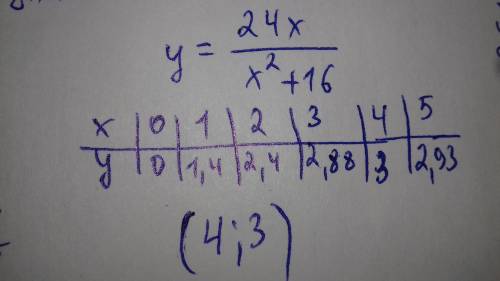 y = 24x / x² + 16
x | 0 | 1 | 2 | 3 | 4 | 5
y | 0 | 1,4 | 2,4 | 2,88 | 3 | 2,93
(4;3)